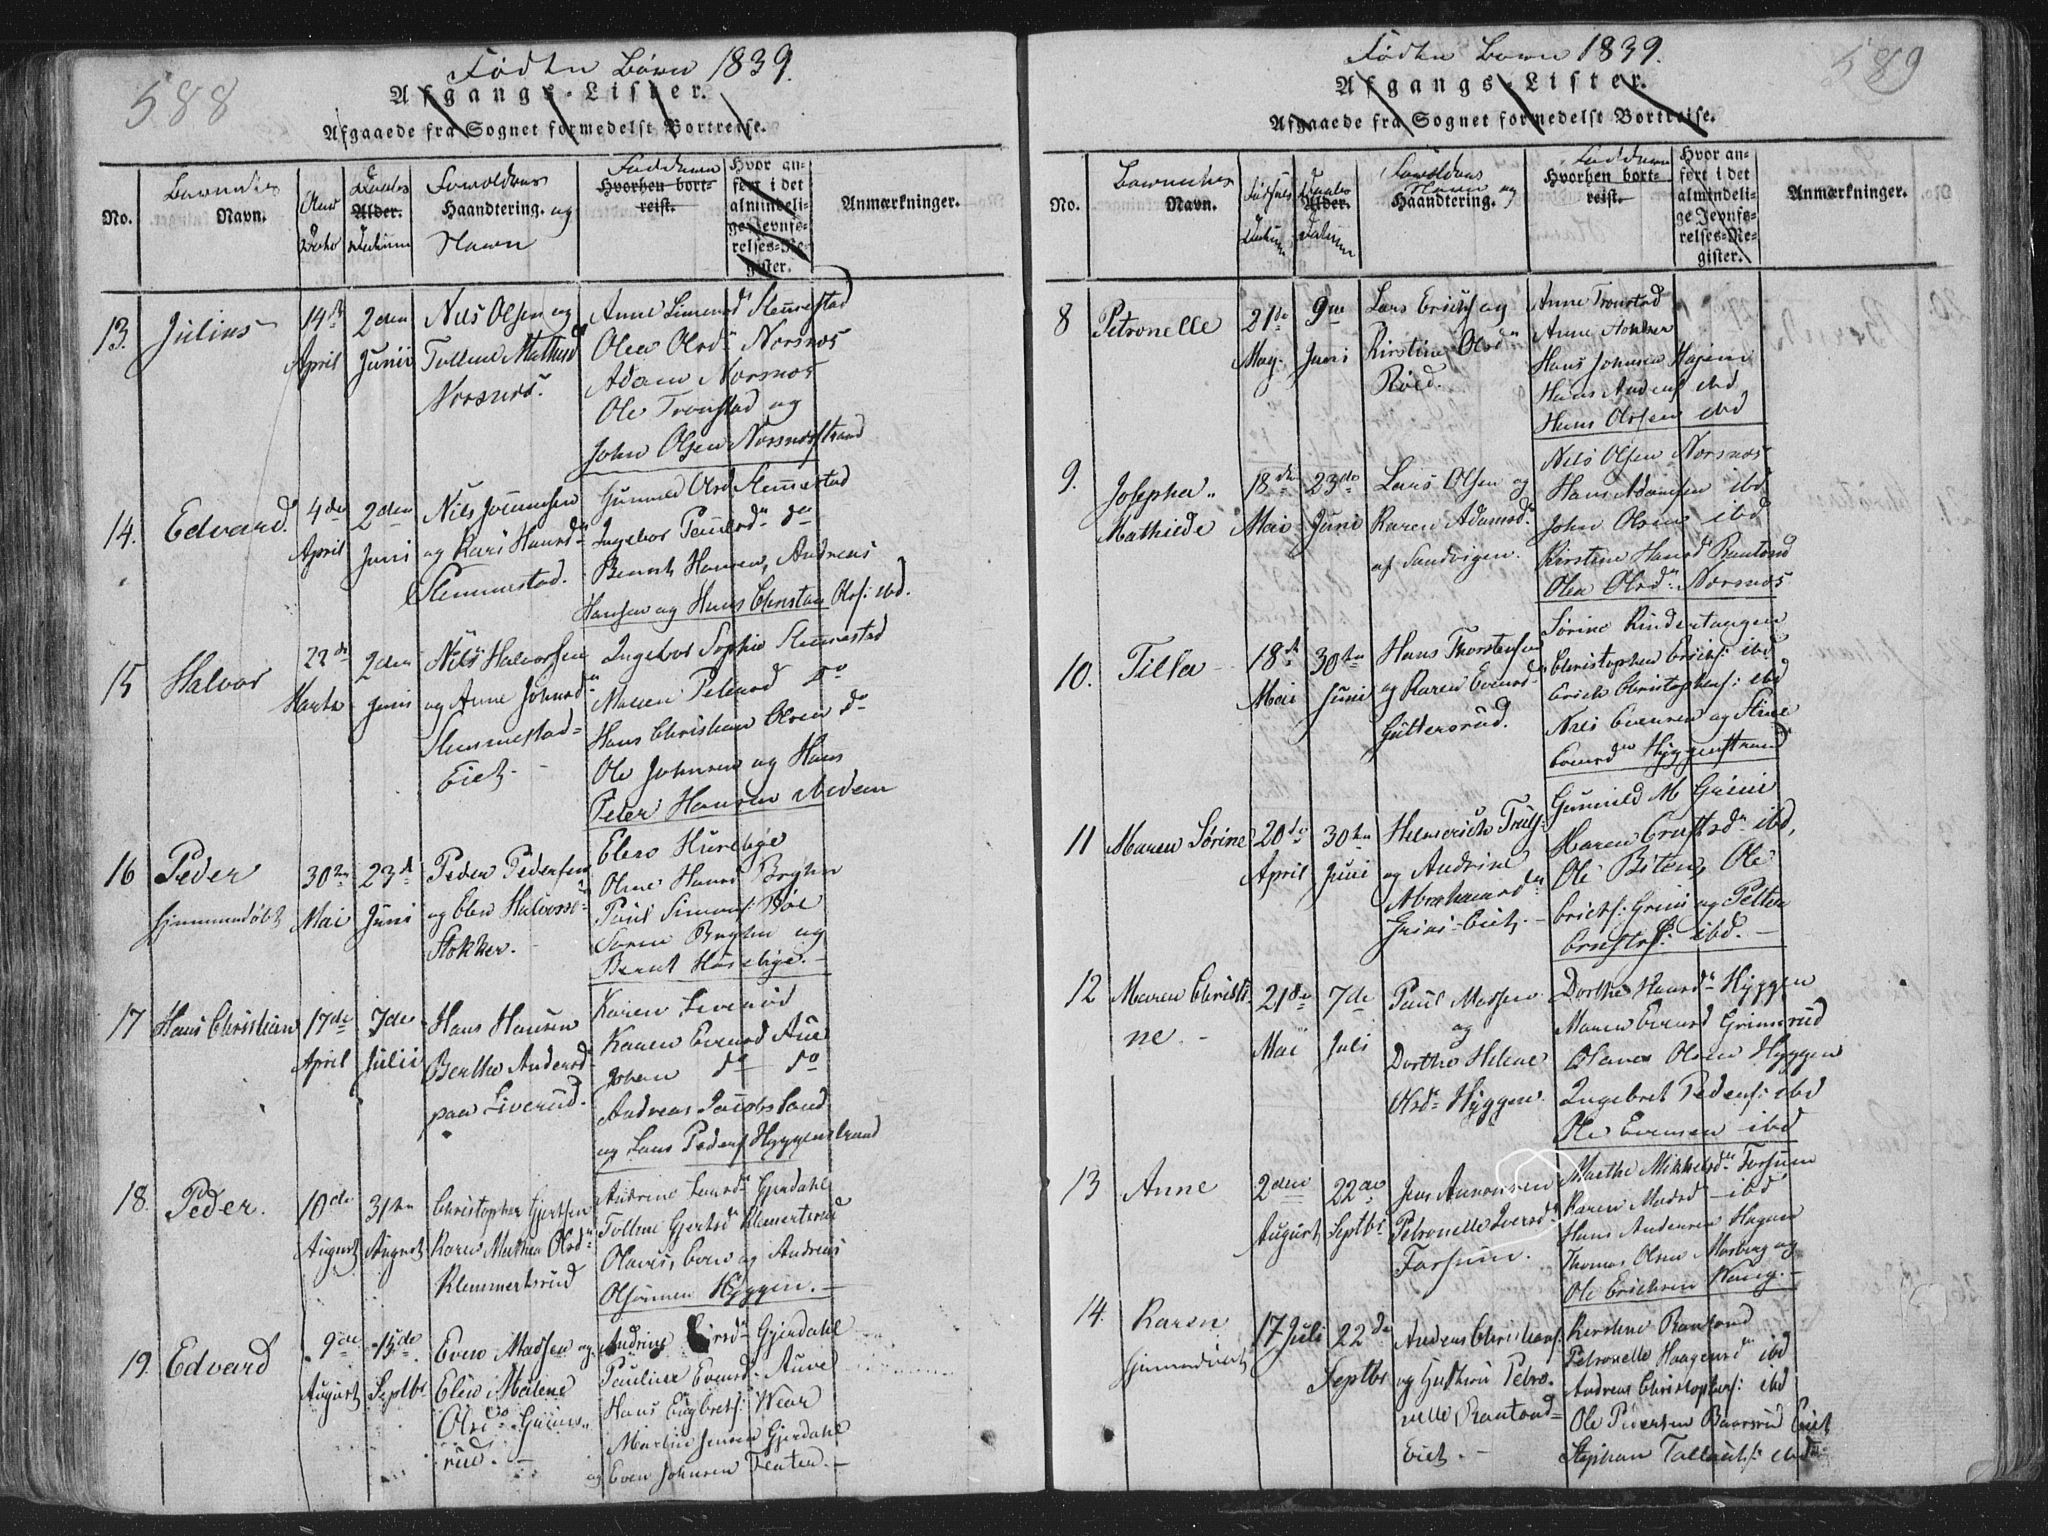 588
Fødte Børn 1839.
Afgangs-Lister.
Afgaaede fra Sognet formedelst Bortreise.
No.
Barnets
Navn.
Aar
Daabs
Alder.
Datum
Forældres
Haandtering. og
Navn
Faddere
Hvorhen bort-
reist.
Hvor an-
ført i det
almindeli-
ge Jevnfø-
relses-Re-
gister.
Anmærkninger.
13. Julius
14de
April
2den
Junii
Nils Olsen og
Tolline Mathisd
Norsnæs.
Anne Simensd Slemmestad
Olea Olsdr Norsnæs
Adam Norsnæs
Ole Tronstad og
John Olsen Norsnæsstrand
14. Edvard.
4de
April
2den
Juni
Nils Joramsen
og Kari Hansdr
Slemmestad.
Gunnild Olsd Slemmestad
Ingebor Paulsdr do
Bernt Hansen, Andreas
Hansen og Hans Christian Ols: ibd.
15 Halvor
22de
Marts
2den
Juni
Nils Halvorsen
og Anne Johnsdr
Slemmestad-
Eiet.
Ingebor Sophie Slemmestad
Maren Pedersd do
Hans Christian Olsen do
Ole Johnsen og Hans
Peter Hansen Nedem
16 Peder
hjemmedøbt
30te
Mai
23de
Juni
Peder Pedersen
og Elen Halvorsdr
Stokker.
Elen Hurebye
Oline Hansd Bryhn
Paul Simens: Røe
Søren Bryhn og
Bernt Husebye.
17 Hans Christian
17de
April
7de
Julii
Hans Hansen
Berthe Andersd
paa Liverud.
Karen Liverud
Karen Evensd Aue
Johan do do
Andreas Jacobs Sand
og Lars Peders Hyggenstrand
18. Peder.
10de
August
31te
August
Christopher Gjertsen
Karen Mathea Olsdr
Klemmertsrud
Andrine Larsdr Gjerdahl
Tolline Gjertsdr Klemertsrud
Olaves, Even og Andreas
Olsønner Hyggen.
19. Edvard
9de
August
15de
Septbr
Even Madsen og
Elen Malene
Olsdr Grims-
rud.
Andrine Larsdr Gjerdahl
Pauline Evensd Auve
Hans Engbrets: Wear
Martin Jensen Gjerdahl
og Even Johnsen Tenten.
589
Fødte Børn 1839.
Afgangs-Lister.
Afgaaede fra Sognet formedelst Bortreise.
No.
Barnets
Navn.
Fødsels
Datum
Daabs
Alder.
Datum
Forældres
Navn og
Haandtering.
Faddere
Hvorhen bort-
reist.
Hvor an-
ført i det
almindeli-
ge Jevnfø-
relses-Re-
gister.
Anmærkninger.
8 Petronelle
21de
May.
9de
Juni
Lars Erichs og
Kirstine Olsdr
Røed.
Anne Tronstad
Anne Stokker
Hans Johnsen Hajem
Hans Anders ibd
Hans Olsen ibd
9. Josepha
Mathilde
18de
Mai
23de
Juni
Lars Olsen og
Karen Adamsdr
af Sandvigen.
Nils Olsen Norsnæs
Hans Adamsen ibd
John Olsen ibd
Kirstine Hansd Rantond
Olea Olsdr Norsnæs
10. Tilla
18de
Mai
30te
Juni
Hans Thorstensen
og Karen Evensd
Guttersrud.
Sørine Kindertangen
Christophen Erichs: ibd
Erich Christophers: ibd
Nils Evensen og Stine
Evensdr Hyggenstrand
11 Maren Sørine
20de
April
30te
Juni
Helmerich Truls:
og Andrine
Abrahamsdr
Grini-Eiet.
Gunnild M Grini
Maren Ernstsdr ibd,
Ole Biten, Ole
Erichs: Grini og Petter
Ernsts: ibd.
12 Maren Christi-
ne.
21de
Mai
7de
Juli
Paul Madsen
og
Dorthe Helene
Olsdr Hyggen.
Dorthe Hansdr Hyggen
Maren Evensd Grimsrud
Olaves Olsen Hyggen
Ingebret Peders: ibd
Ole Evensen ibd
13 Anne
2den
August
22de
Septbr
Jens Aanonsen
Petronelle Iversdr
Forsum.
Marthe Mikkelsdr Forsum
Karen Madsd ibd
Hans Andersen Hagum
Thomas Olsen Morberg og
Ole Erichsen Wang.
14. Karen
Hjemmedøbt
17 Juli
22de
Septbr
Andreas Christians:
og Gudhrun Petro-
nelle, Rantond-
Eiet.
Kirstine Rantond
Petronelle Haagensd ibd
Andreas Christophers: ibd
Ole Pedersen Baarsrud Eiet
Stephan Tallaks: ibd